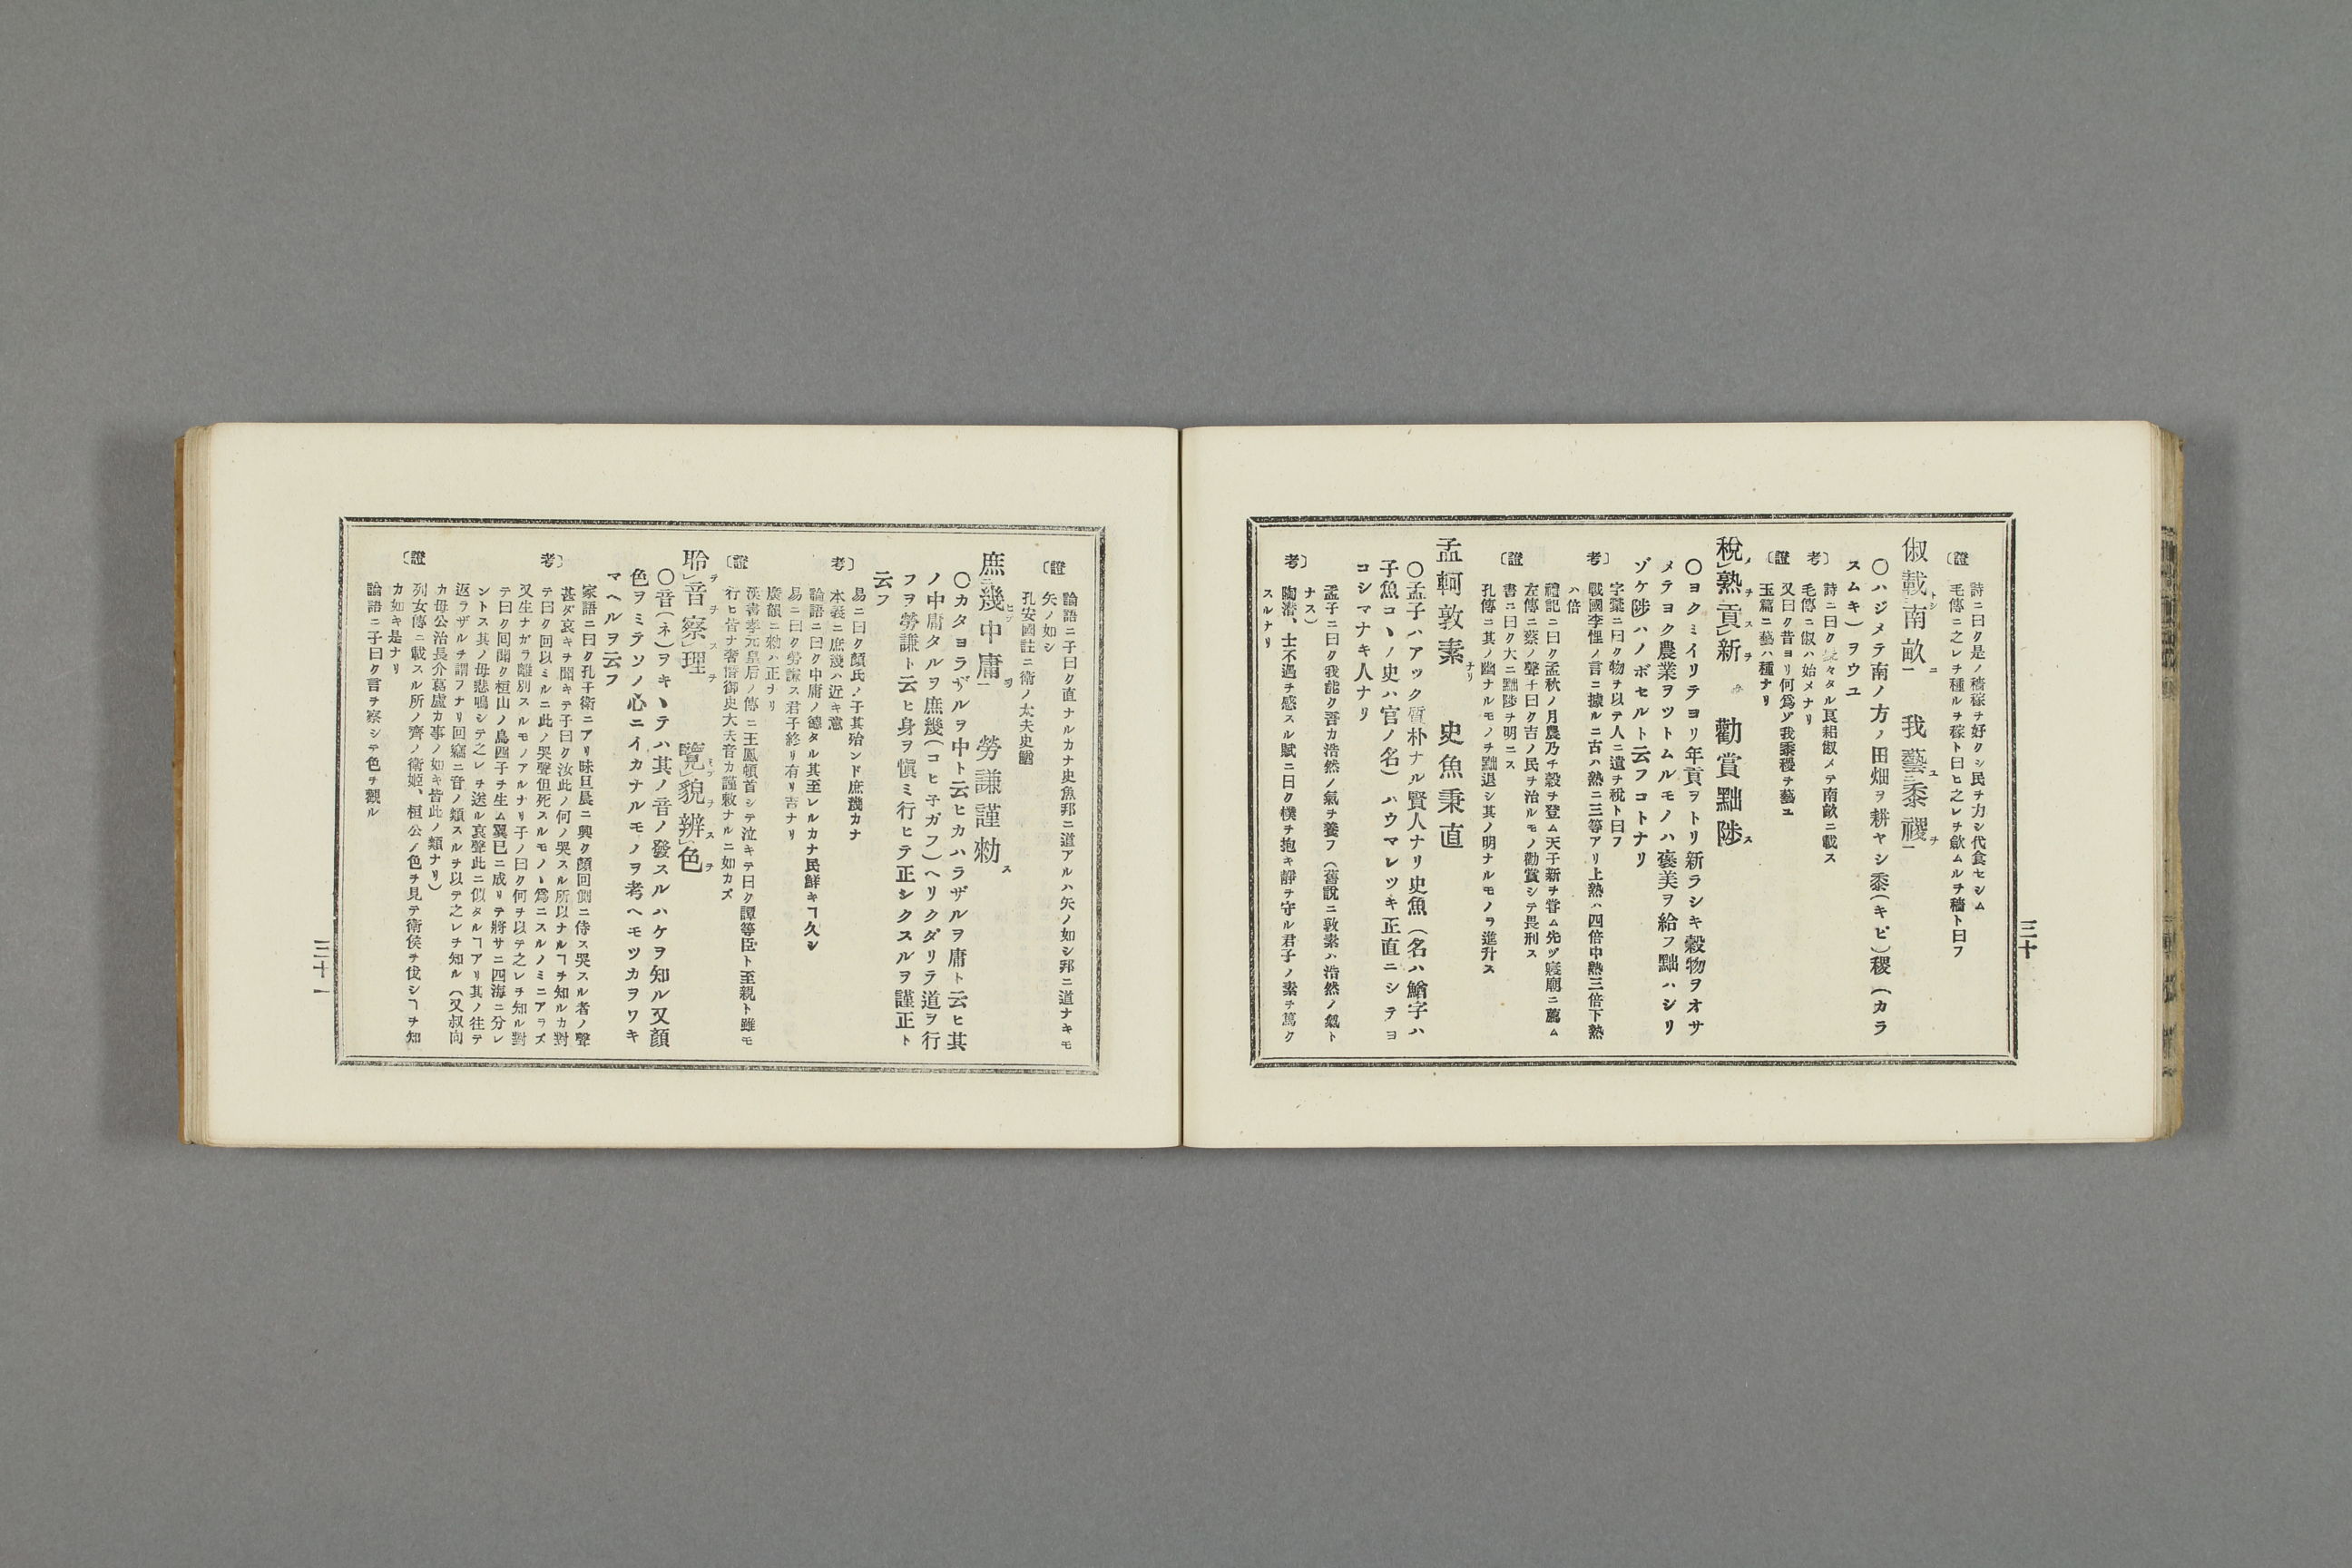 三十
詩ニ曰ク是ノ穡稼ヲ好クシ民ヲ力シ代食セシム
〔證 毛傳ニ之レヲ種ルヲ稼ト曰ヒ之レヲ歛ムルヲ穡ト曰フ
俶載南畝 我藝黍稷
〇ハジメテ南ノ方ノ田畑ヲ耕ヤシ黍(キビ)稷(カラ
スムキ)ヲウユ
詩ニ曰ク タル耜俶メテ南畝ニ載ス
考〕 毛傳ニ俶ハ始メナリ
又曰ク昔ヨリ何爲ゾ我黍稷ヲ藝ユ
〔證 玉篇ニ藝ハ種ナリ
稅熟貢新 勸賞黜陟
〇ヨクミイリテヨリ年貢ヲトリ新ラシキ穀物ヲオサ
メテヨク農業ヲツトムルモノハ褒美ヲ給フ黜ハシリ
ゾケ陟ハノボセルト云フコトナリ
字彙ニ曰ク物ヲ以テ人ニ遺ヲ稅ト曰フ
考〕 戰國李悝ノ言ニ據ルニ古ハ熟ニ三等アリ上熟ハ四倍中熟三倍下熟
ハ倍
禮記ニ曰ク孟秋ノ月農乃チ穀ヲ登ム天子新ヲ甞ム先ヅ寢廟ニ薦ム
左傳ニ蔡ノ聲子曰ク吉ノ民ヲ治ルモノ勸賞シテ畏刑ス
〔證 書ニ曰ク大ニ黜陟ヲ明ニス
孔傳ニ其ノ幽ナルモノヲ黜退シ其ノ明ナルモノヲ進升ス
孟軻敦素 史魚秉直
〇孟子ハアック質朴ナル賢人ナリ史魚(名ハ鰌字ハ
子魚コヽノ史ハ官ノ名)ハウマレツキ正直ニシテヨ
コシマナキ人ナリ
孟子ニ曰ク我能ク吾カ浩然ノ氣ヲ養フ(舊說ニ敦素ハ浩然ノ氣ト
ナス)
考〕 陶潜、士不遇ヲ感スル賦ニ曰ク樸ヲ抱キ靜ヲ守ル君子ノ素ヲ篤ク
スルナリ
論語ニ子曰ク直ナルカナ史魚邦ニ道アルハ矢ノ如シ邦ニ道ナキモ
〔證 矢ノ如シ
孔安國註ニ衛ノ大夫史鰌
庶幾中庸 勞謙謹勅
〇カタヨラザルヲ中ト云ヒカハラザルヲ庸ト云ヒ其
ノ中庸タルヲ庶幾(コヒ子ガフ)ヘリクダリラ道ヲ行
フヲ勞謙ト云ヒ身ヲ愼ミ行ヒテ正シクスルヲ謹正ト
云フ
易ニ曰ク顏氏ノ子其殆ンド庶幾カナ
考〕 本義ニ庶幾ハ近キ意
論語ニ曰ク中庸ノ德タル其至レルカナ民鮮キヿ久シ
易ニ曰ク勞謙ス君子終リ有リ吉ナリ
廣韻ニ勅ハ正ナリ
漢書孝元皇后ノ傳ニ王鳳頓首シテ泣キテ曰ク譚等臣ト至親ト雖モ
〔證 行ヒ皆ナ奢僭御史大夫音カ謹敕ナルニ如カズ
聆音察理 覽貌辨色
〇音(ネ)ヲキヽテハ其ノ音ノ發スルハケヲ知ル又顏
色ヲミテソノ心ニイカナルモノヲ考ヘモツカヲワキ
マヘルヲ云フ
家語ニ曰ク孔子衛ニアリ昧旦晨ニ興ク顏回側ニ侍ス哭スル者ノ聲
甚ダ哀キヲ聞キテ子曰ク汝此ノ何ノ哭スル所以ナルヿヲ知ルカ對
考〕 テ曰ク回以ミルニ此ノ哭聲但死スルモノヽ爲ニスルノミニアラズ
又生ナガラ離別スルモノアルナリ子ノ曰ク何ヲ以テ之レヲ知ル對
テ曰ク回聞ク桓山ノ鳥四子ヲ生ム翼已ニ成リテ將サニ四海ニ分レ
ントス其ノ母悲鳴シテ之レヲ送ル哀聲此ニ似タルヿアリ其ノ往テ
返ラザルヲ謂フナリ回竊ニ音ノ類スルヲ以テ之レヲ知ル(又叔向
カ母公冶長介葛盧カ事ノ如キ皆此ノ類ナリ)
〔證 列女傳ニ載スル所ノ齊ノ衛姬、桓公ノ色ヲ見テ衛侯ヲ伐シヿヲ知
カ如キ是ナリ
論語ニ子曰ク言ヲ察シテ色ヲ觀ル
三十一